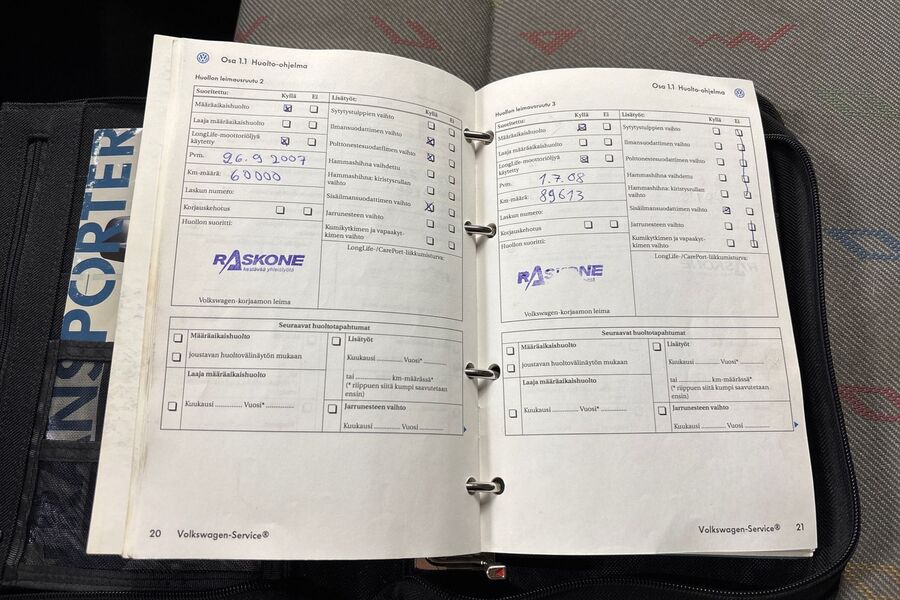 Osa 1.1 Huolto-ohjelma
Huollon leimausruutu 2
Suoritettu: Kyllä Ei
Määräaikaishuolto
Laaja määräaikaishuolto
LongLife-moottoriöljyä
käytetty
Pvm. 26.9 2007
Km-määrä: 60000
Laskun numero:
Korjauskehotus
Huollon suoritti:
RASKONE
kestävää yhteistyötä
Volkswagen-korjaamon leima
Lisätyöt: Kyllä Ei
Sytytystulppien vaihto
Ilmansuodattimen vaihto
Polttonestesuodattimen vaihto
Hammashihna vaihdettu
Hammashihna: kiristysrullan
vaihto
Sisäilmansuodattimen vaihto
Jarrunesteen vaihto
Kumikytkimen ja vapaakyt-
kimen vaihto
LongLife-/CarePort-liikkumisturva:
Seuraavat huoltotapahtumat
Määräaikaishuolto
joustavan huoltovälinäytön mukaan
Laaja määräaikaishuolto
Kuukausi .............. Vuosi* ..............
Lisätyöt
Kuukausi .............. Vuosi* ..............
tai .............. km-määrässä*
(* riippuen siitä kumpi saavutetaan
ensin)
Jarrunesteen vaihto
Kuukausi .............. Vuosi ..............
20 Volkswagen-Service®
Osa 1.1 Huolto-ohjelma
Huollon leimausruutu 3
Suoritettu: Kyllä Ei
Määräaikaishuolto
Laaja määräaikaishuolto
LongLife-moottoriöljyä
käytetty
Pvm. 1.7.08
Km-määrä: 89613
Laskun numero:
Korjauskehotus
Huollon suoritti:
RASKONE
Volkswagen-korjaamon leima
Lisätyöt: Kyllä Ei
Sytytystulppien vaihto
Ilmansuodattimen vaihto
Polttonestesuodattimen vaihto
Hammashihna vaihdettu
Hammashihna: kiristysrullan
vaihto
Sisäilmansuodattimen vaihto
Jarrunesteen vaihto
Kumikytkimen ja vapaakyt-
kimen vaihto
LongLife-/CarePort-liikkumisturva:
Seuraavat huoltotapahtumat
Määräaikaishuolto
joustavan huoltovälinäytön mukaan
Laaja määräaikaishuolto
Kuukausi .............. Vuosi* ..............
Lisätyöt
Kuukausi .............. Vuosi* ..............
tai .............. km-määrässä*
(* riippuen siitä kumpi saavutetaan
ensin)
Jarrunesteen vaihto
Kuukausi .............. Vuosi ..............
Volkswagen-Service® 21
NSPORTER